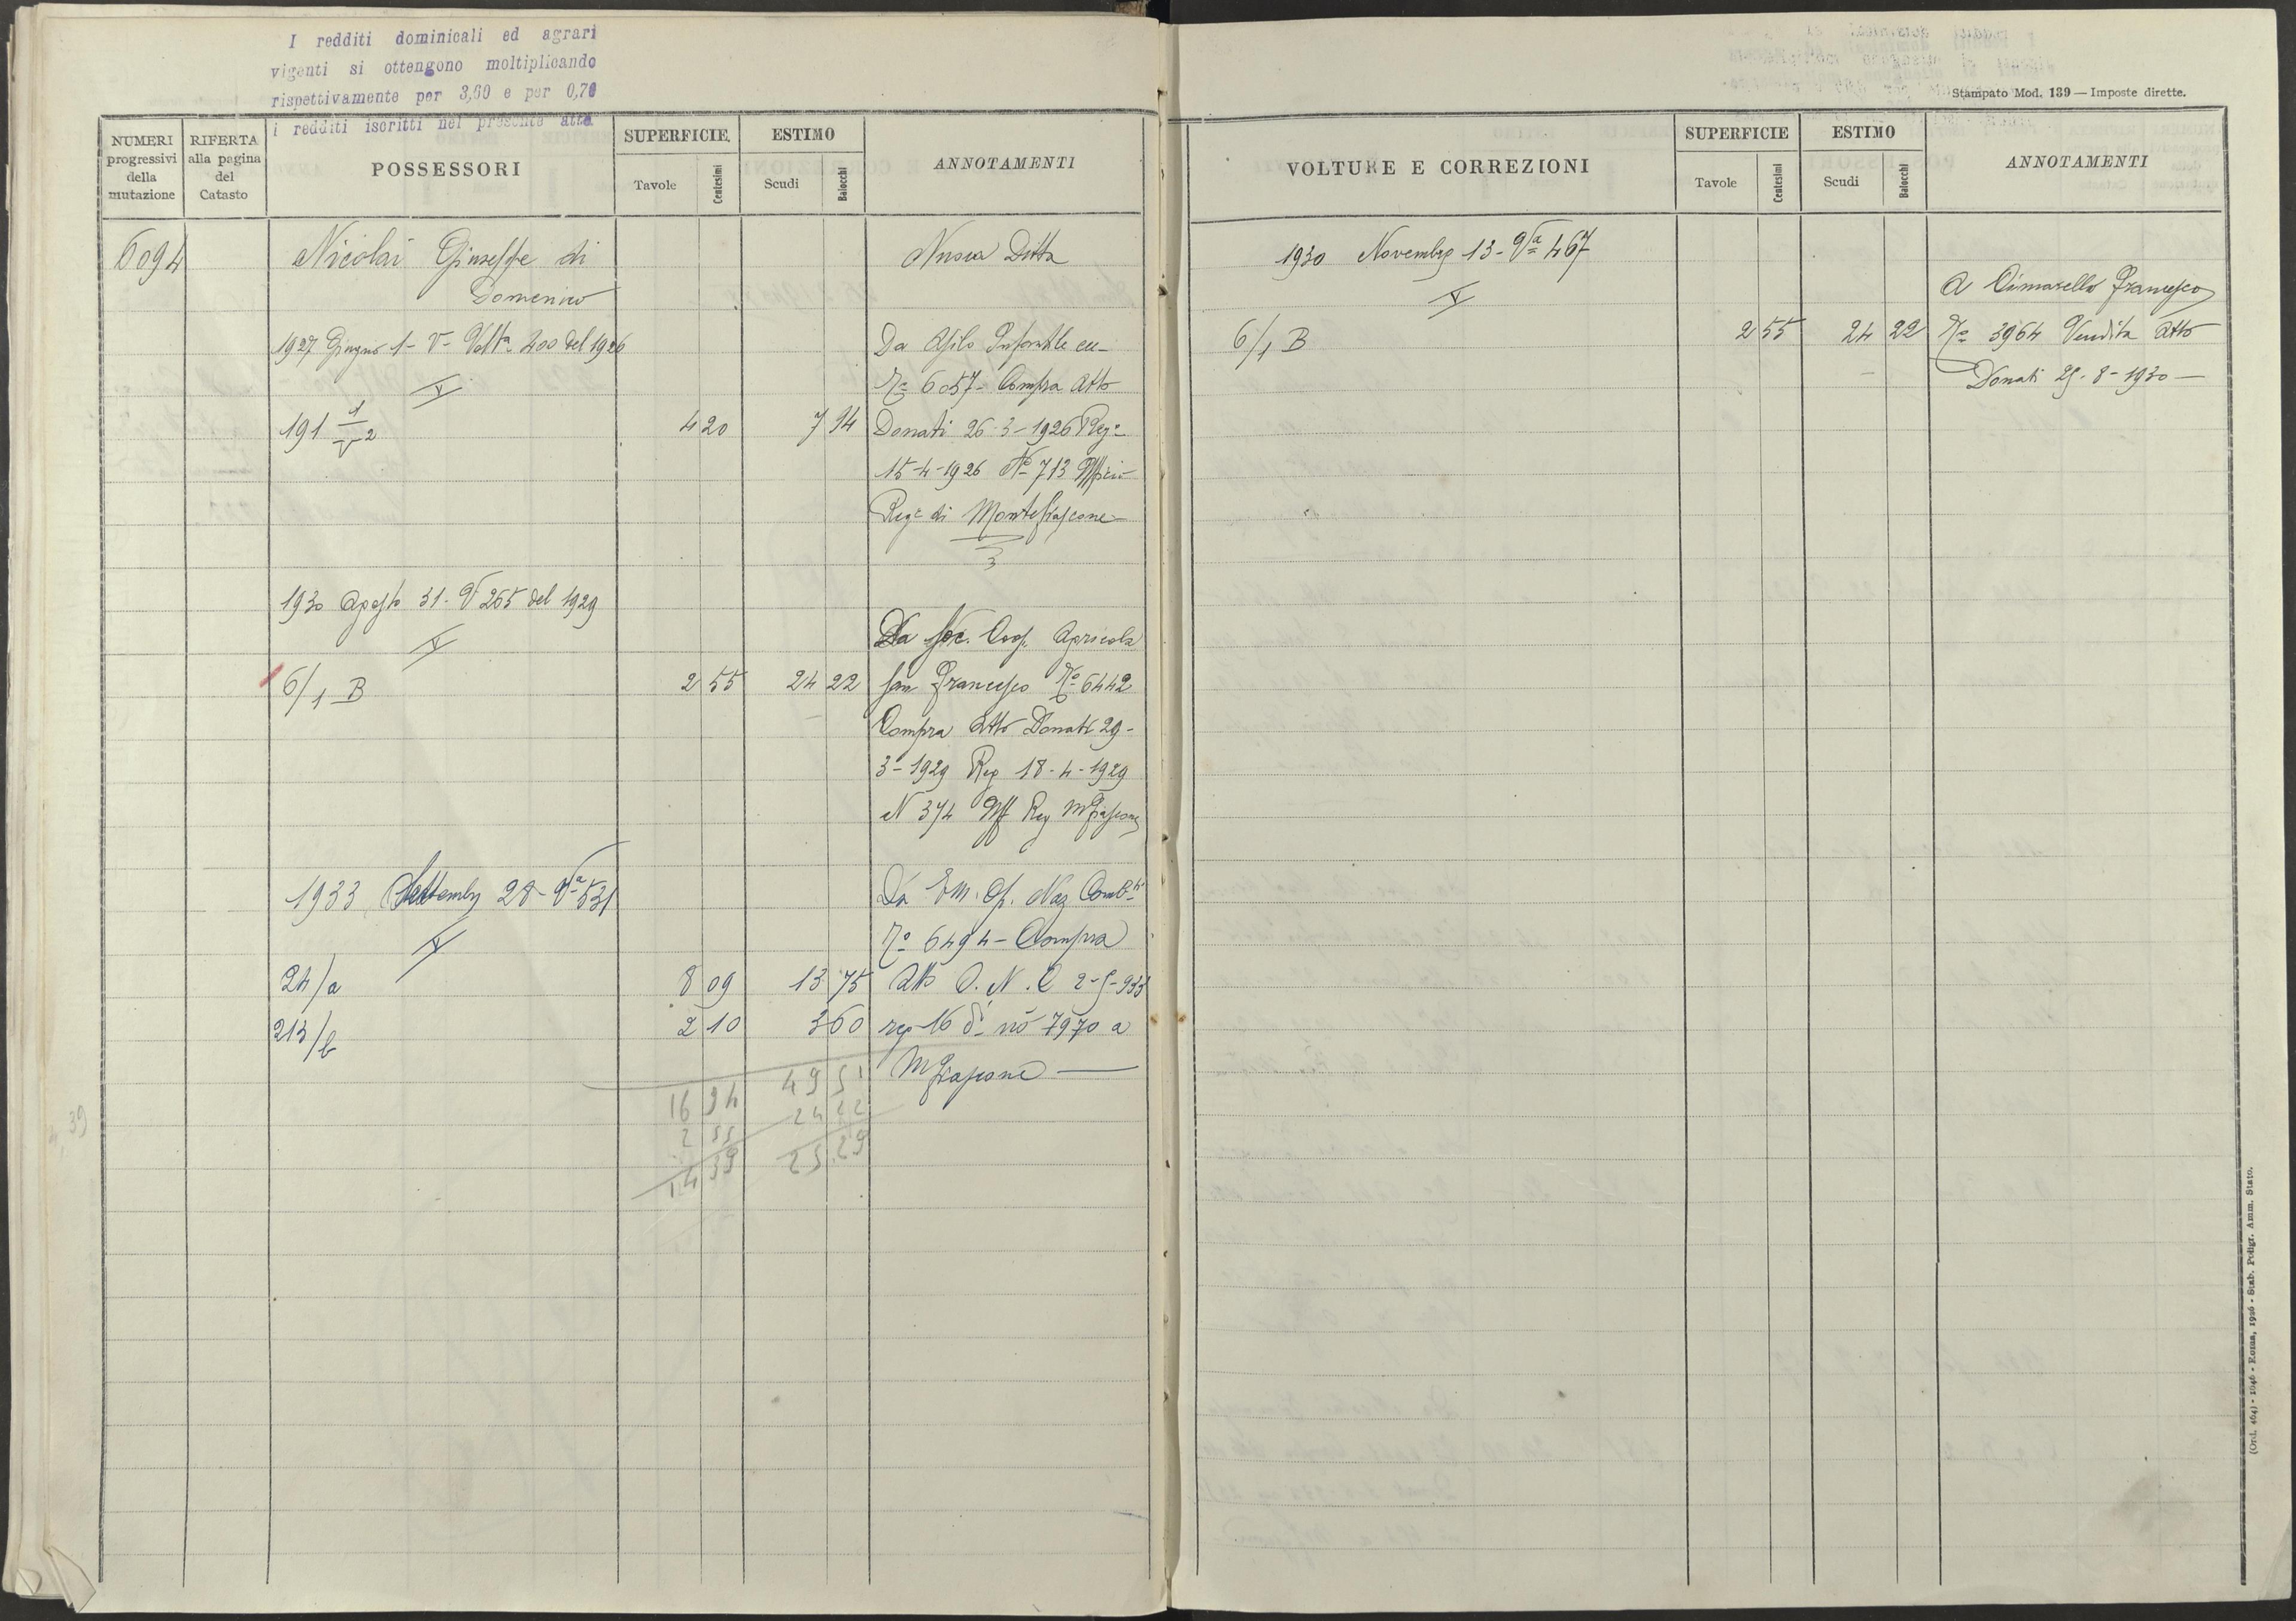 I redditi dominicali ed agrari
vigenti si ottengono moltiplicando
rispettivamente per 3,60 e per 0,70
i redditi iscritti nel presente atto
NUMERI progressivi della mutazione
RIFERTA alla pagina del Catasto
POSSESSORI
SUPERFICIE
Tavole
Centesimi
ESTIMO
Scudi
Baiocchi
ANNOTAMENTI
6094
Nicolai Giuseppe di
Domenico
Nuova Ditta
1927 Giugno 1 - V- Volta 400 del 1926
Da Asilo Infantile
No 6057 - Compra Atto
191 1/2 4 20 7 94 Donati 26-3-1926 Rego
15-4-1926 No 713 Ufficio
Rego di Montefiascone
1930 Agosto 31 - V 265 del 1929
Da Soc. Coop. Agricola
6/1 B 2 55 24 22 San Francesco No 6442
Compra Atto Donati 29-
3-1929 Reg 18-4-1929
N 374 Uff Reg Mfiascone
1933 Settembre 28 - Va 531
Da Em. Op. Naz Combti
No 6494 - Compra
24/a 8 09 13 75 Atto O. N. C 2-5-933
213/b 2 10 3 60 reg 16 di no 7970 a
Mfiascone
16 94 49 51
2 55 24 22
14 39 25 29
Stampato Mod. 139 — Imposte dirette.
VOLTURE E CORREZIONI
SUPERFICIE
Tavole
Centesimi
ESTIMO
Scudi
Baiocchi
ANNOTAMENTI
1930 Novembre 13 - Va 467
A Cimarello Francesco
6/1 B 2 55 24 22 No 3964 Vendita Atto
Donati 25-8-1930
(Ord. 464) - 1046 - Roma, 1926 - Stab. Poligr. Amm. Stato.
39